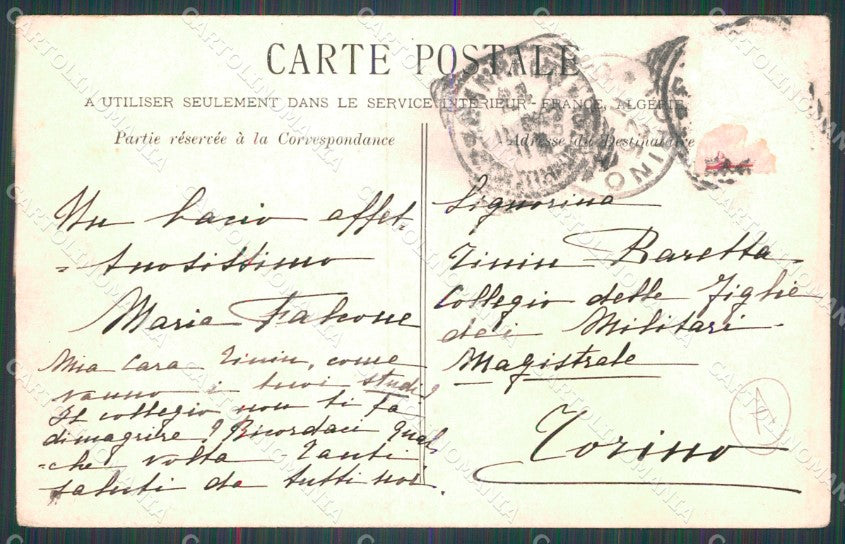 CARTE POSTALE
A UTILISER SEULEMENT DANS LE SERVICE INTÉRIEUR - FRANCE, ALGÉRIE
Partie réservée à la Correspondance
Un bacio affet-
-tuosissimo
Maria Falcone
Mia cara Tinin, come
vanno i tuoi studi?
Il collegio non ti fa
dimagrire? Ricordaci qual-
-che volta. Tanti
saluti da tutti noi.
Adresse du Destinataire
Signorina
Tinin Baretta
Collegio delle Figlie
dei Militari
Magistrale
Torino
TORINO
CARTOLINOMANIA